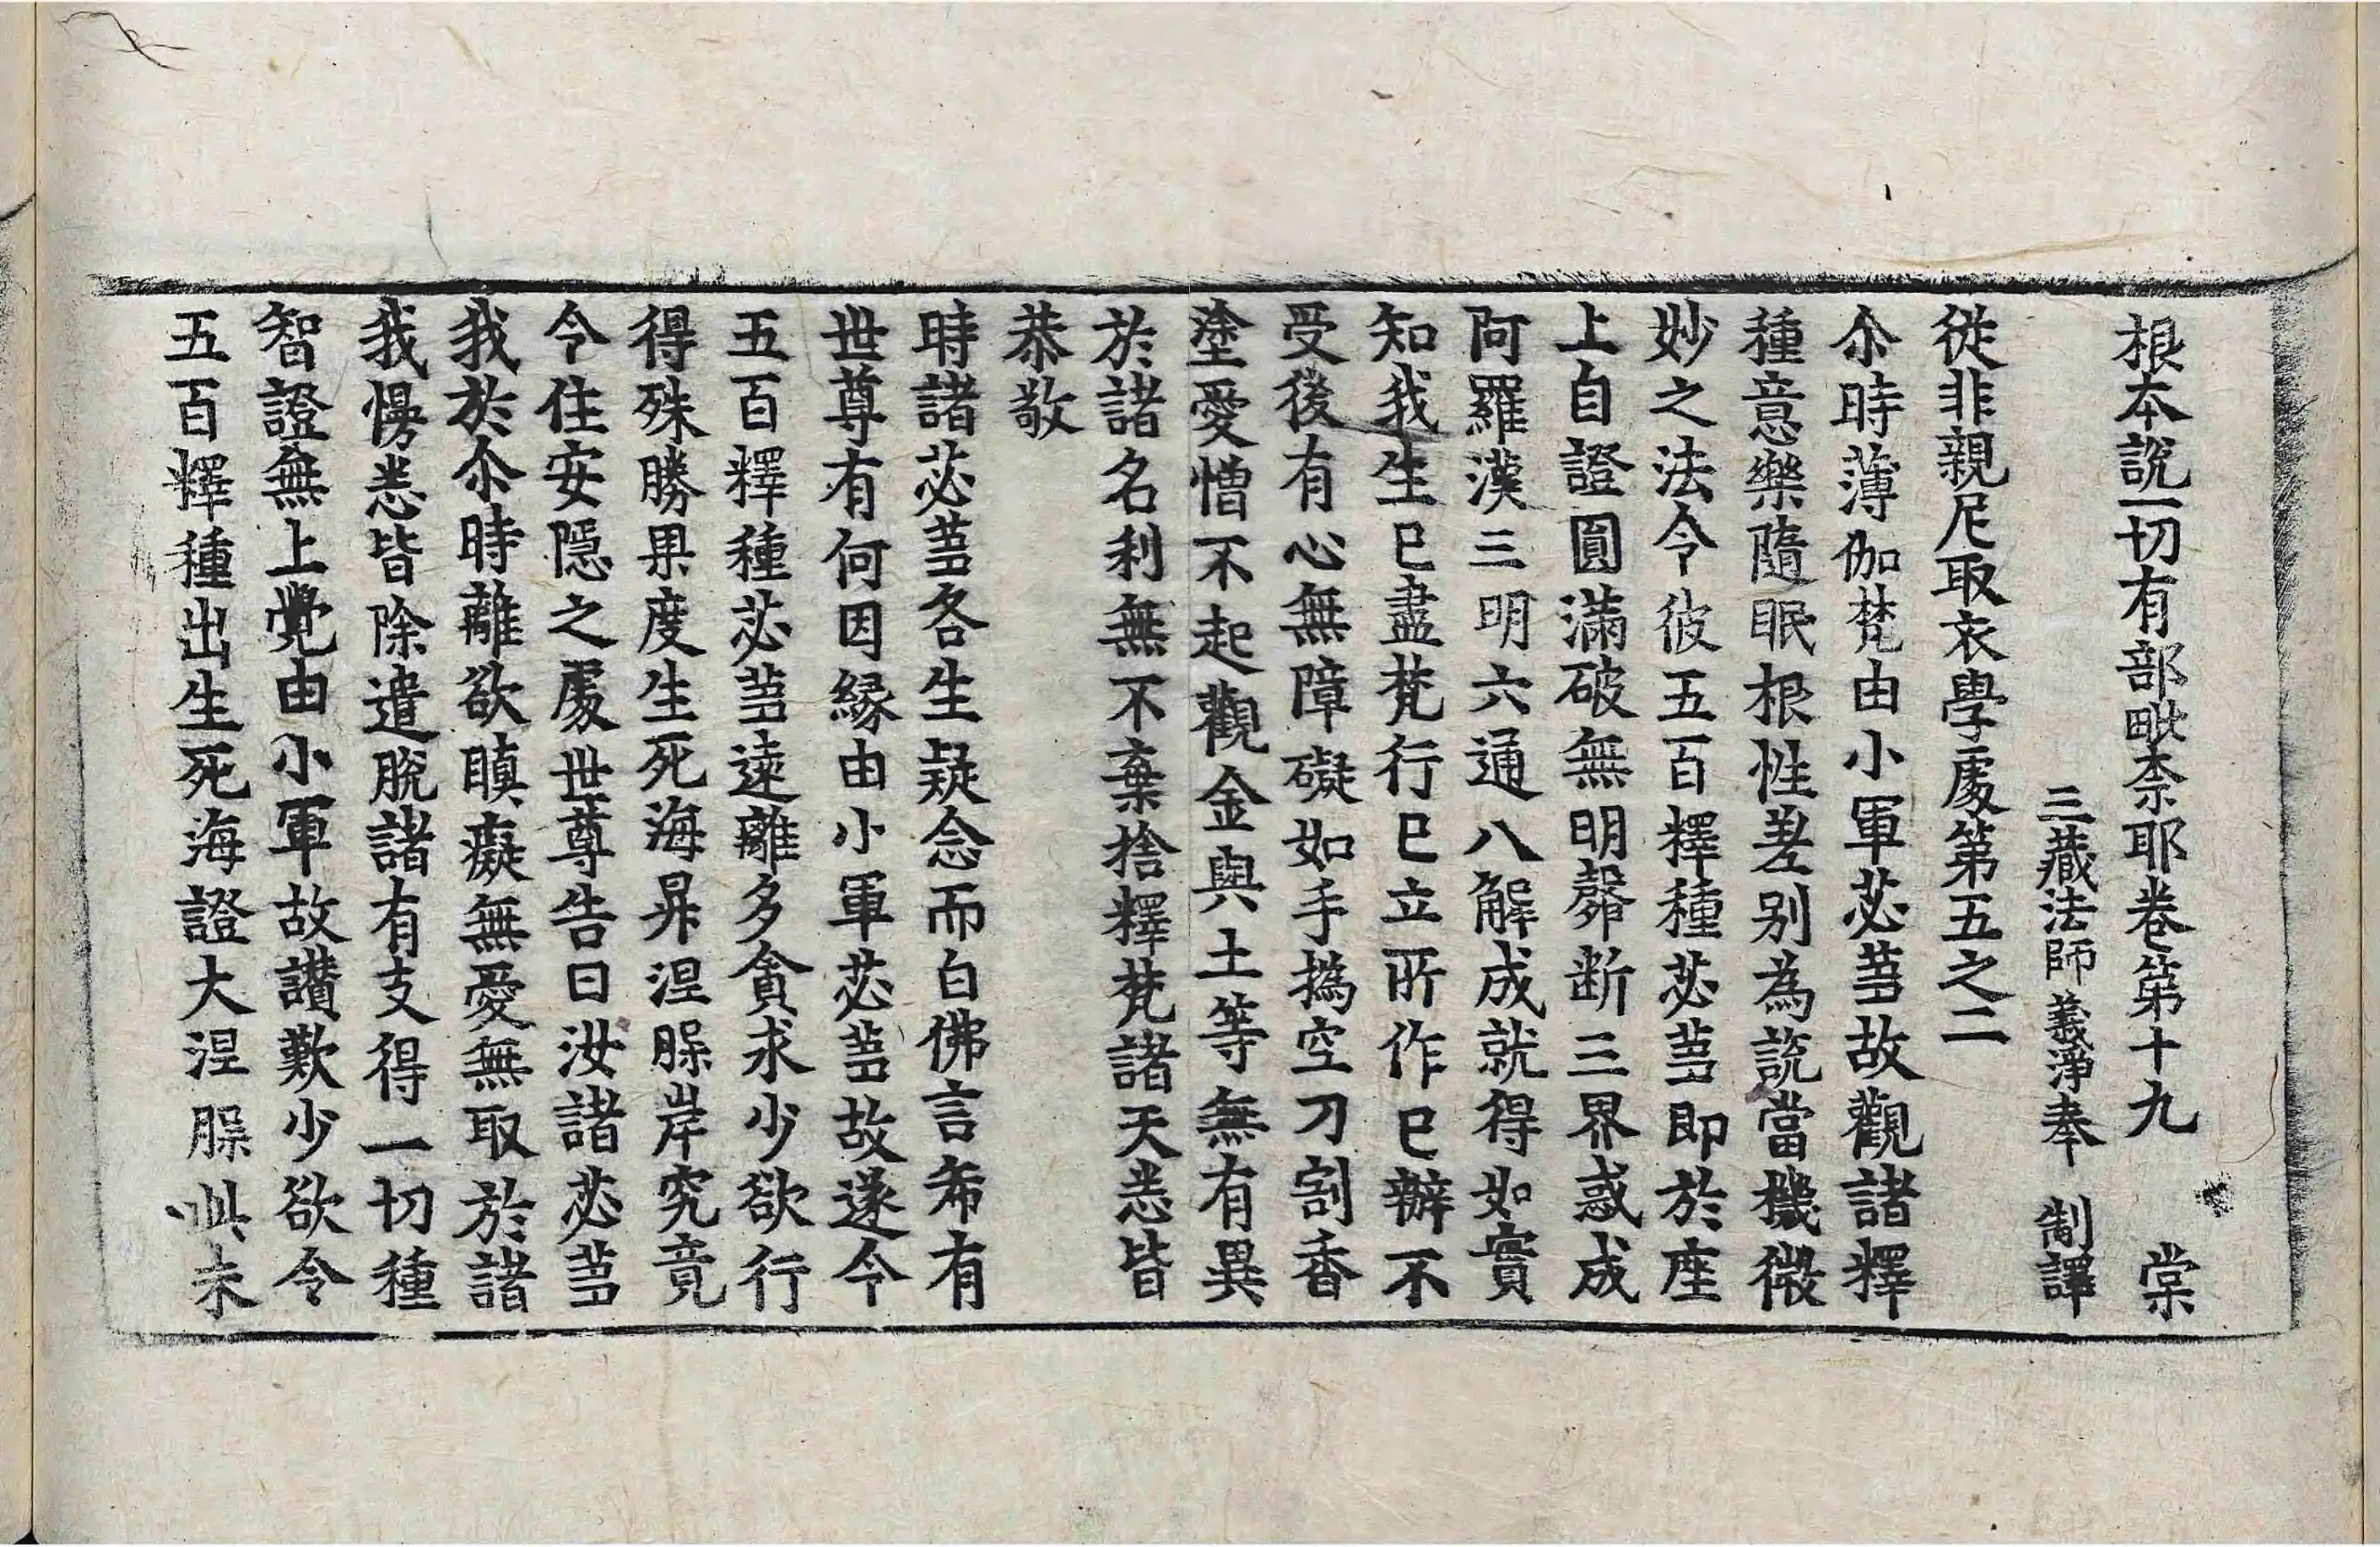 根本說一切有部毗奈耶卷第十九 棠
三藏法師義淨奉 制譯
從非親尼取衣學處第五之二
尒時薄伽梵由小軍苾芻故觀諸釋
種意樂隨眠根性差別為說當機微
妙之法令彼五百釋種苾芻即於座
上自證圓滿破無明㲉斷三界惑成
阿羅漢三明六通八解成就得如實
知我生已盡梵行已立所作已辦不
受後有心無障礙如手撝空刀割香
塗愛憎不起觀金與土等無有異
於諸名利無不棄捨釋梵諸天悉皆
恭敬
時諸苾芻各生疑念而白佛言希有
世尊有何因緣由小軍苾芻故遂令
五百釋種苾芻遠離多貪求少欲行
得殊勝果度生死海昇涅槃岸究竟
令住安隱之處世尊告曰汝諸苾芻
我於尒時離欲瞋癡無愛無取於諸
我慢悉皆除遣脫諸有支得一切種
智證無上覺由小軍故讚歎少欲令
五百釋種出生死海證大涅槃此未